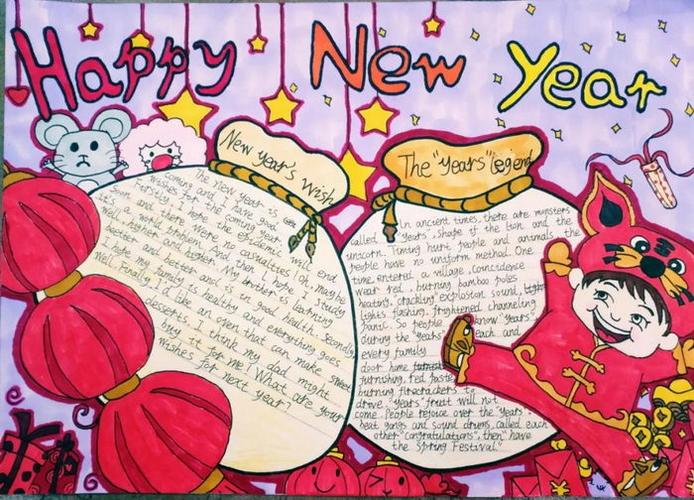 Happy New Year
New Year's Wish
The New Year is
coming and I have good
wishes for the coming year.
Firstly, I hope the epidemic will end
soon and there were no casualties. Oh, maybe
it's a world problem. And then I hope I study
well, higher and higher. My brother is learning
better and better and is in good health. Secondly,
I hope my family is healthy and everything goes
well. Finally, I'd like an oven that can make sweet
desserts. I think my dad might
buy it for me! What are your
wishes for next year?
The "Years" legend
In ancient times, there are monsters
called "years", shape if the lion and the
unicorn. Timing hurt people and animals, the
people have no uniform method. One
time, entered a village, coincidence
wear red, burning bamboo poles
heating, crackling explosion sound,
lights flashing, frightened channeling
panic. So people know "years".
during the years each and
every family
door home
furnishing, red paste
burning firecrackers to
drive "years" fruit will not
come. People rejoice over the "years".
beat gongs and sound drums, called each
other "congratulations", then "have
the Spring Festival."